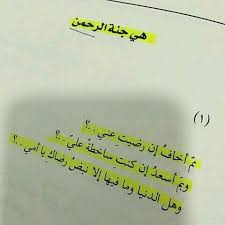 هي جنة الرحمن
(١)
ممّ أخافُ إن رضيتِ عني..؟
وبمَ أسعدُ إن كنتِ ساخطةً عليّ..؟
وهل الدنيا وما فيها إلا نبضُ رضاكِ يا أمي..؟